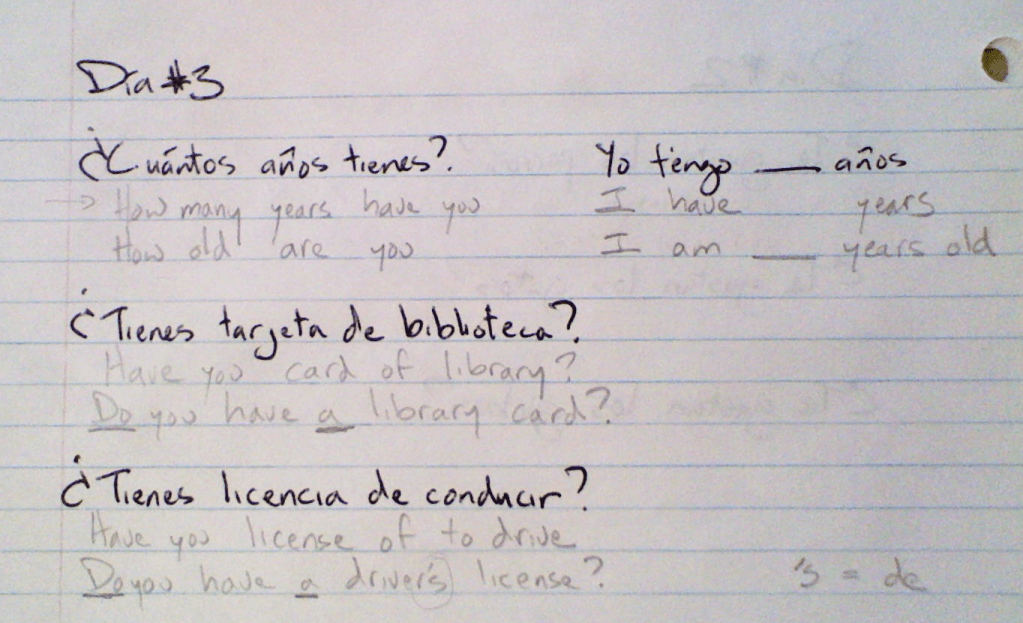 Día #3
¿Cuántos años tienes? Yo tengo ___ años
→ How many years have you I have years
How old are you I am ___ years old
¿Tienes tarjeta de biblioteca?
Have you card of library?
Do you have a library card?
¿Tienes licencia de conducir?
Have you license of to drive
Do you have a driver's license? 's = de